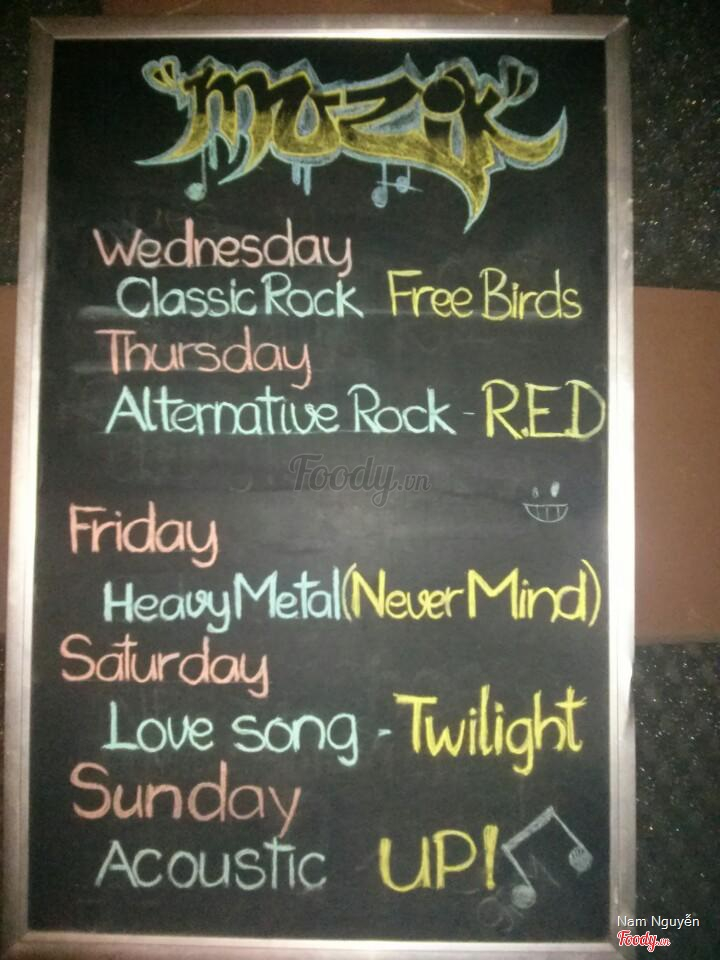 "muzik"
Wednesday
Classic Rock Free Birds
Thursday
Alternative Rock - R.E.D
Foody.vn
Friday
Heavy Metal (Never Mind)
Saturday
Love song - Twilight
Sunday
Acoustic UP!
Nam Nguyễn
Foody.vn